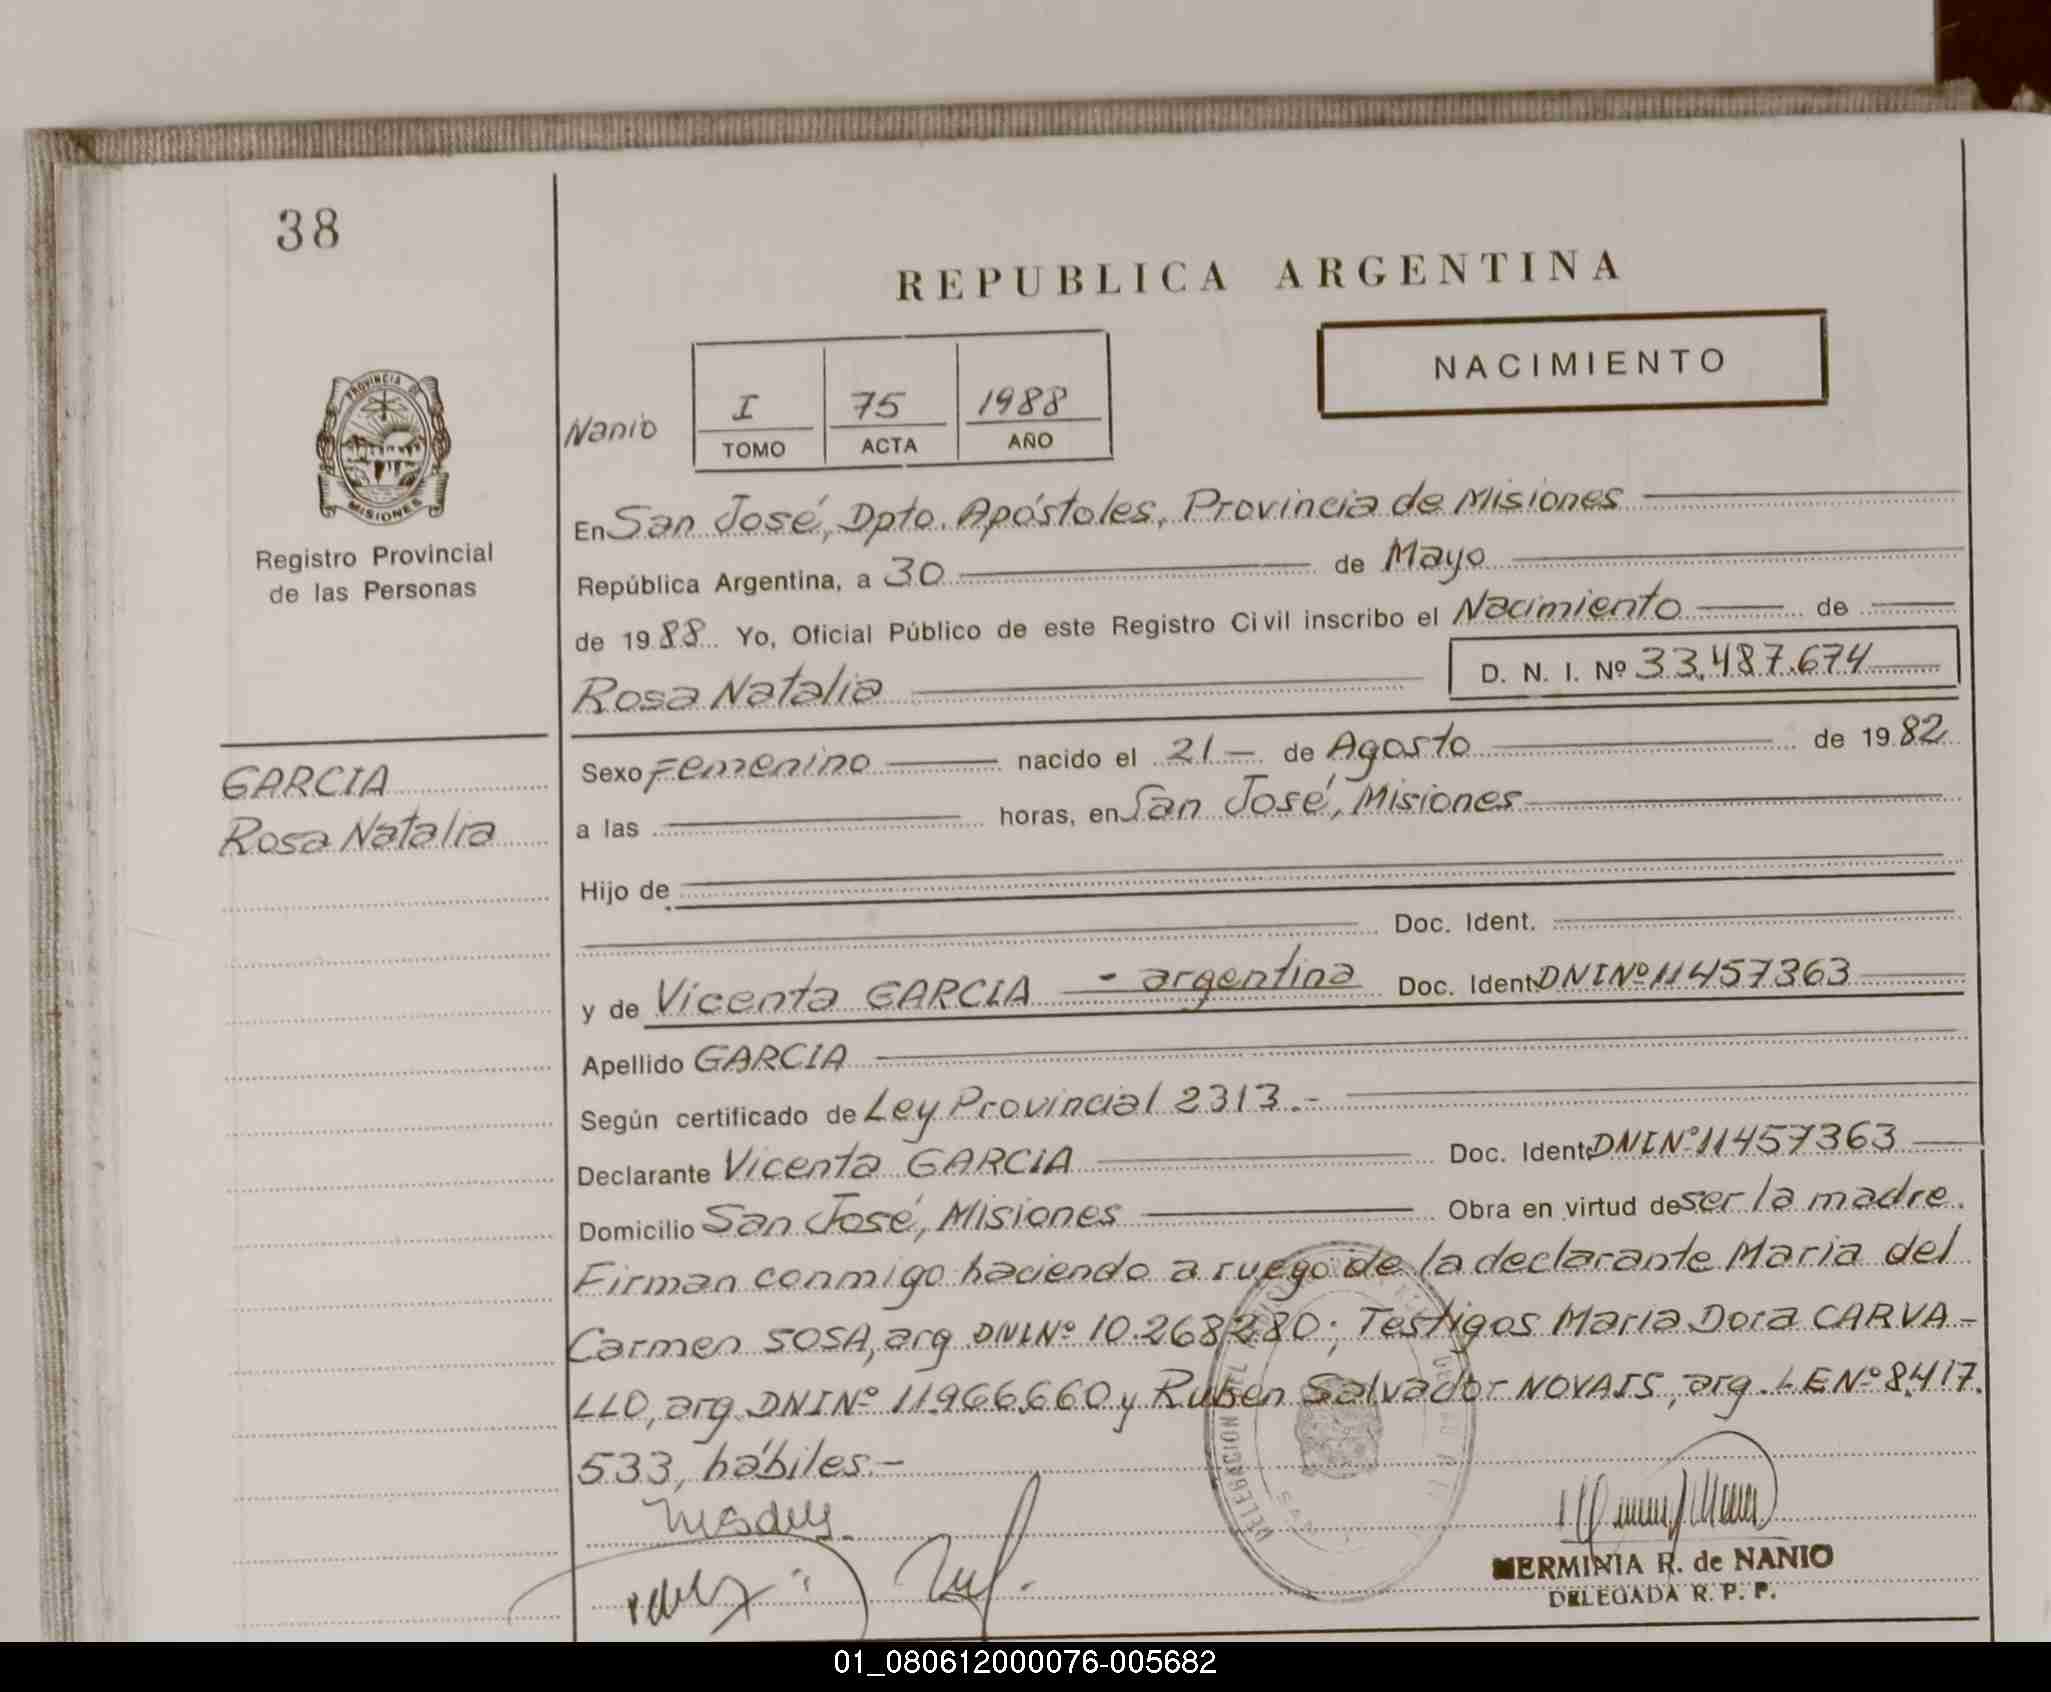 38
REPUBLICA ARGENTINA
NACIMIENTO
PROVINCIA DE
MISIONES
Registro Provincial
de las Personas
Nanio
I 75 1988
TOMO ACTA AÑO
En San José, Dpto. Apóstoles, Provincia de Misiones
República Argentina, a 30 de Mayo
de 1988 Yo, Oficial Público de este Registro Civil inscribo el Nacimiento de
Rosa Natalia D. N. I. Nº 33.487.674
GARCIA
Rosa Natalia
Sexo Femenino nacido el 21 — de Agosto de 1982
a las horas, en San José, Misiones
Hijo de
Doc. Ident.
y de Vicenta GARCIA - argentina Doc. Ident. DNI Nº 11457363
Apellido GARCIA
Según certificado de Ley Provincial 2313.-
Declarante Vicenta GARCIA Doc. Ident. DNI Nº 11457363
Domicilio San José, Misiones Obra en virtud de ser la madre.
Firman conmigo haciendo a ruego de la declarante Maria del
Carmen SOSA, arg. DNI Nº 10.268280; Testigos Maria Dora CARVA-
LLO, arg. DNI Nº 11.966.660 y Ruben Salvador NOVAIS, arg. LE Nº 8.417.
533, hábiles.-
DELEGACION DEL
HERMINIA R. de NANIO
DELEGADA R. P. P.
01_080612000076-005682